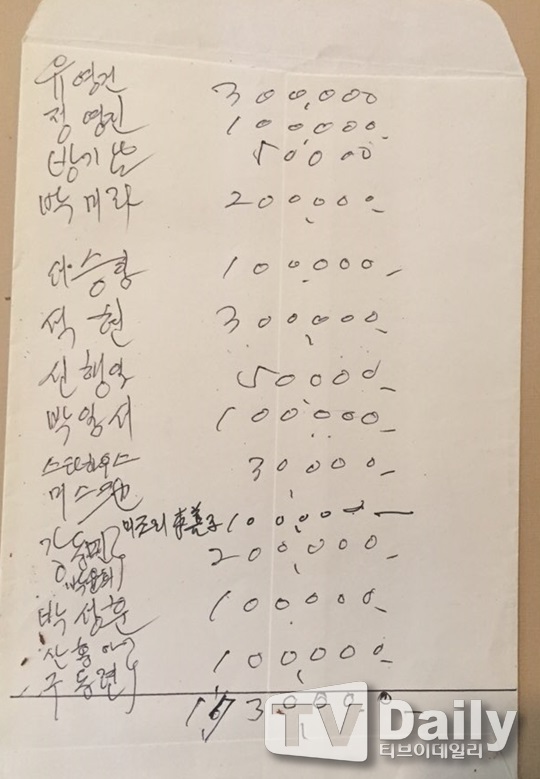 유영건 300,000
정영진 100,000
방기남 50000
박미라 200,000
승황 100,000
석현 300,000
신행악 50000
박일서 100,000
스타하우스 30,000
미스
미조리 李善子 100,00
강동민 200,000
박성훈 100,000
산홍아
구동련 100,000
30,000
TV Daily
티브이데일리